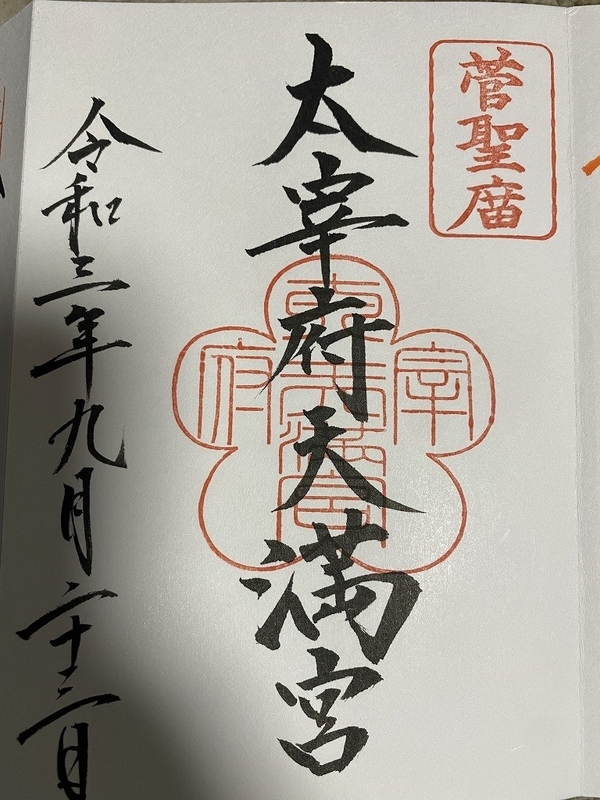 菅聖廟
太宰府天満宮
宰
府
令和三年九月二十三日